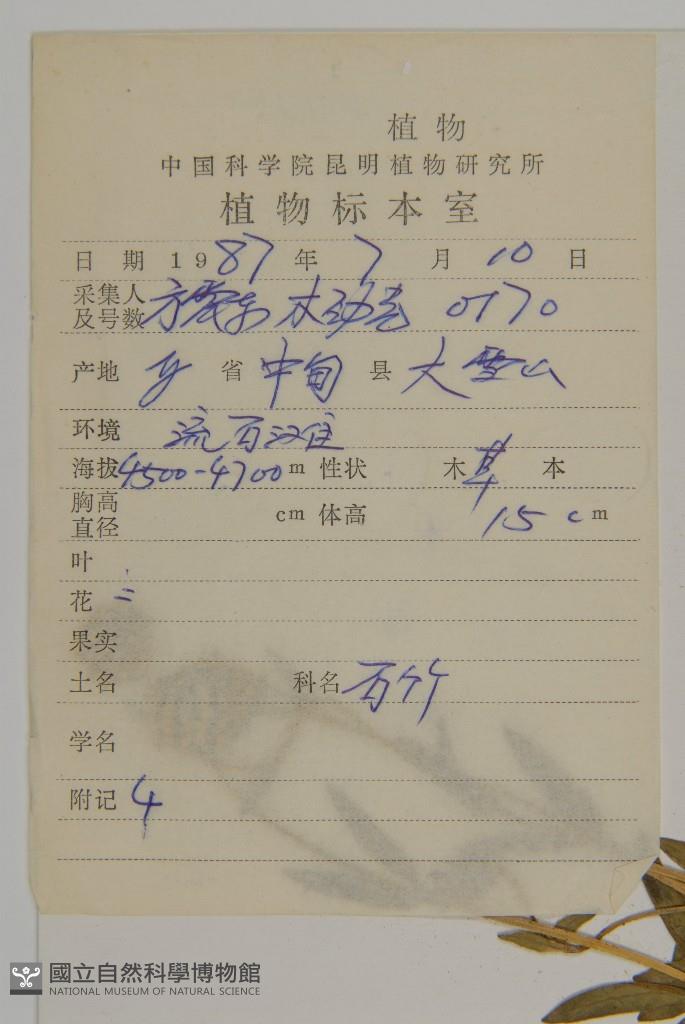 植物
中国科学院昆明植物研究所
植物标本室
日 期 1987 年 7 月 10 日
采集人
及号数 0170
产地 省 中甸 县 大雪山
环境 流石滩
海拔 4500-4700 m 性状 木 草 本
胸高
直径 cm 体高 15 cm
叶
花
果实
土名 科名 石竹
学名
附记 4
國立自然科學博物館
NATIONAL MUSEUM OF NATURAL SCIENCE